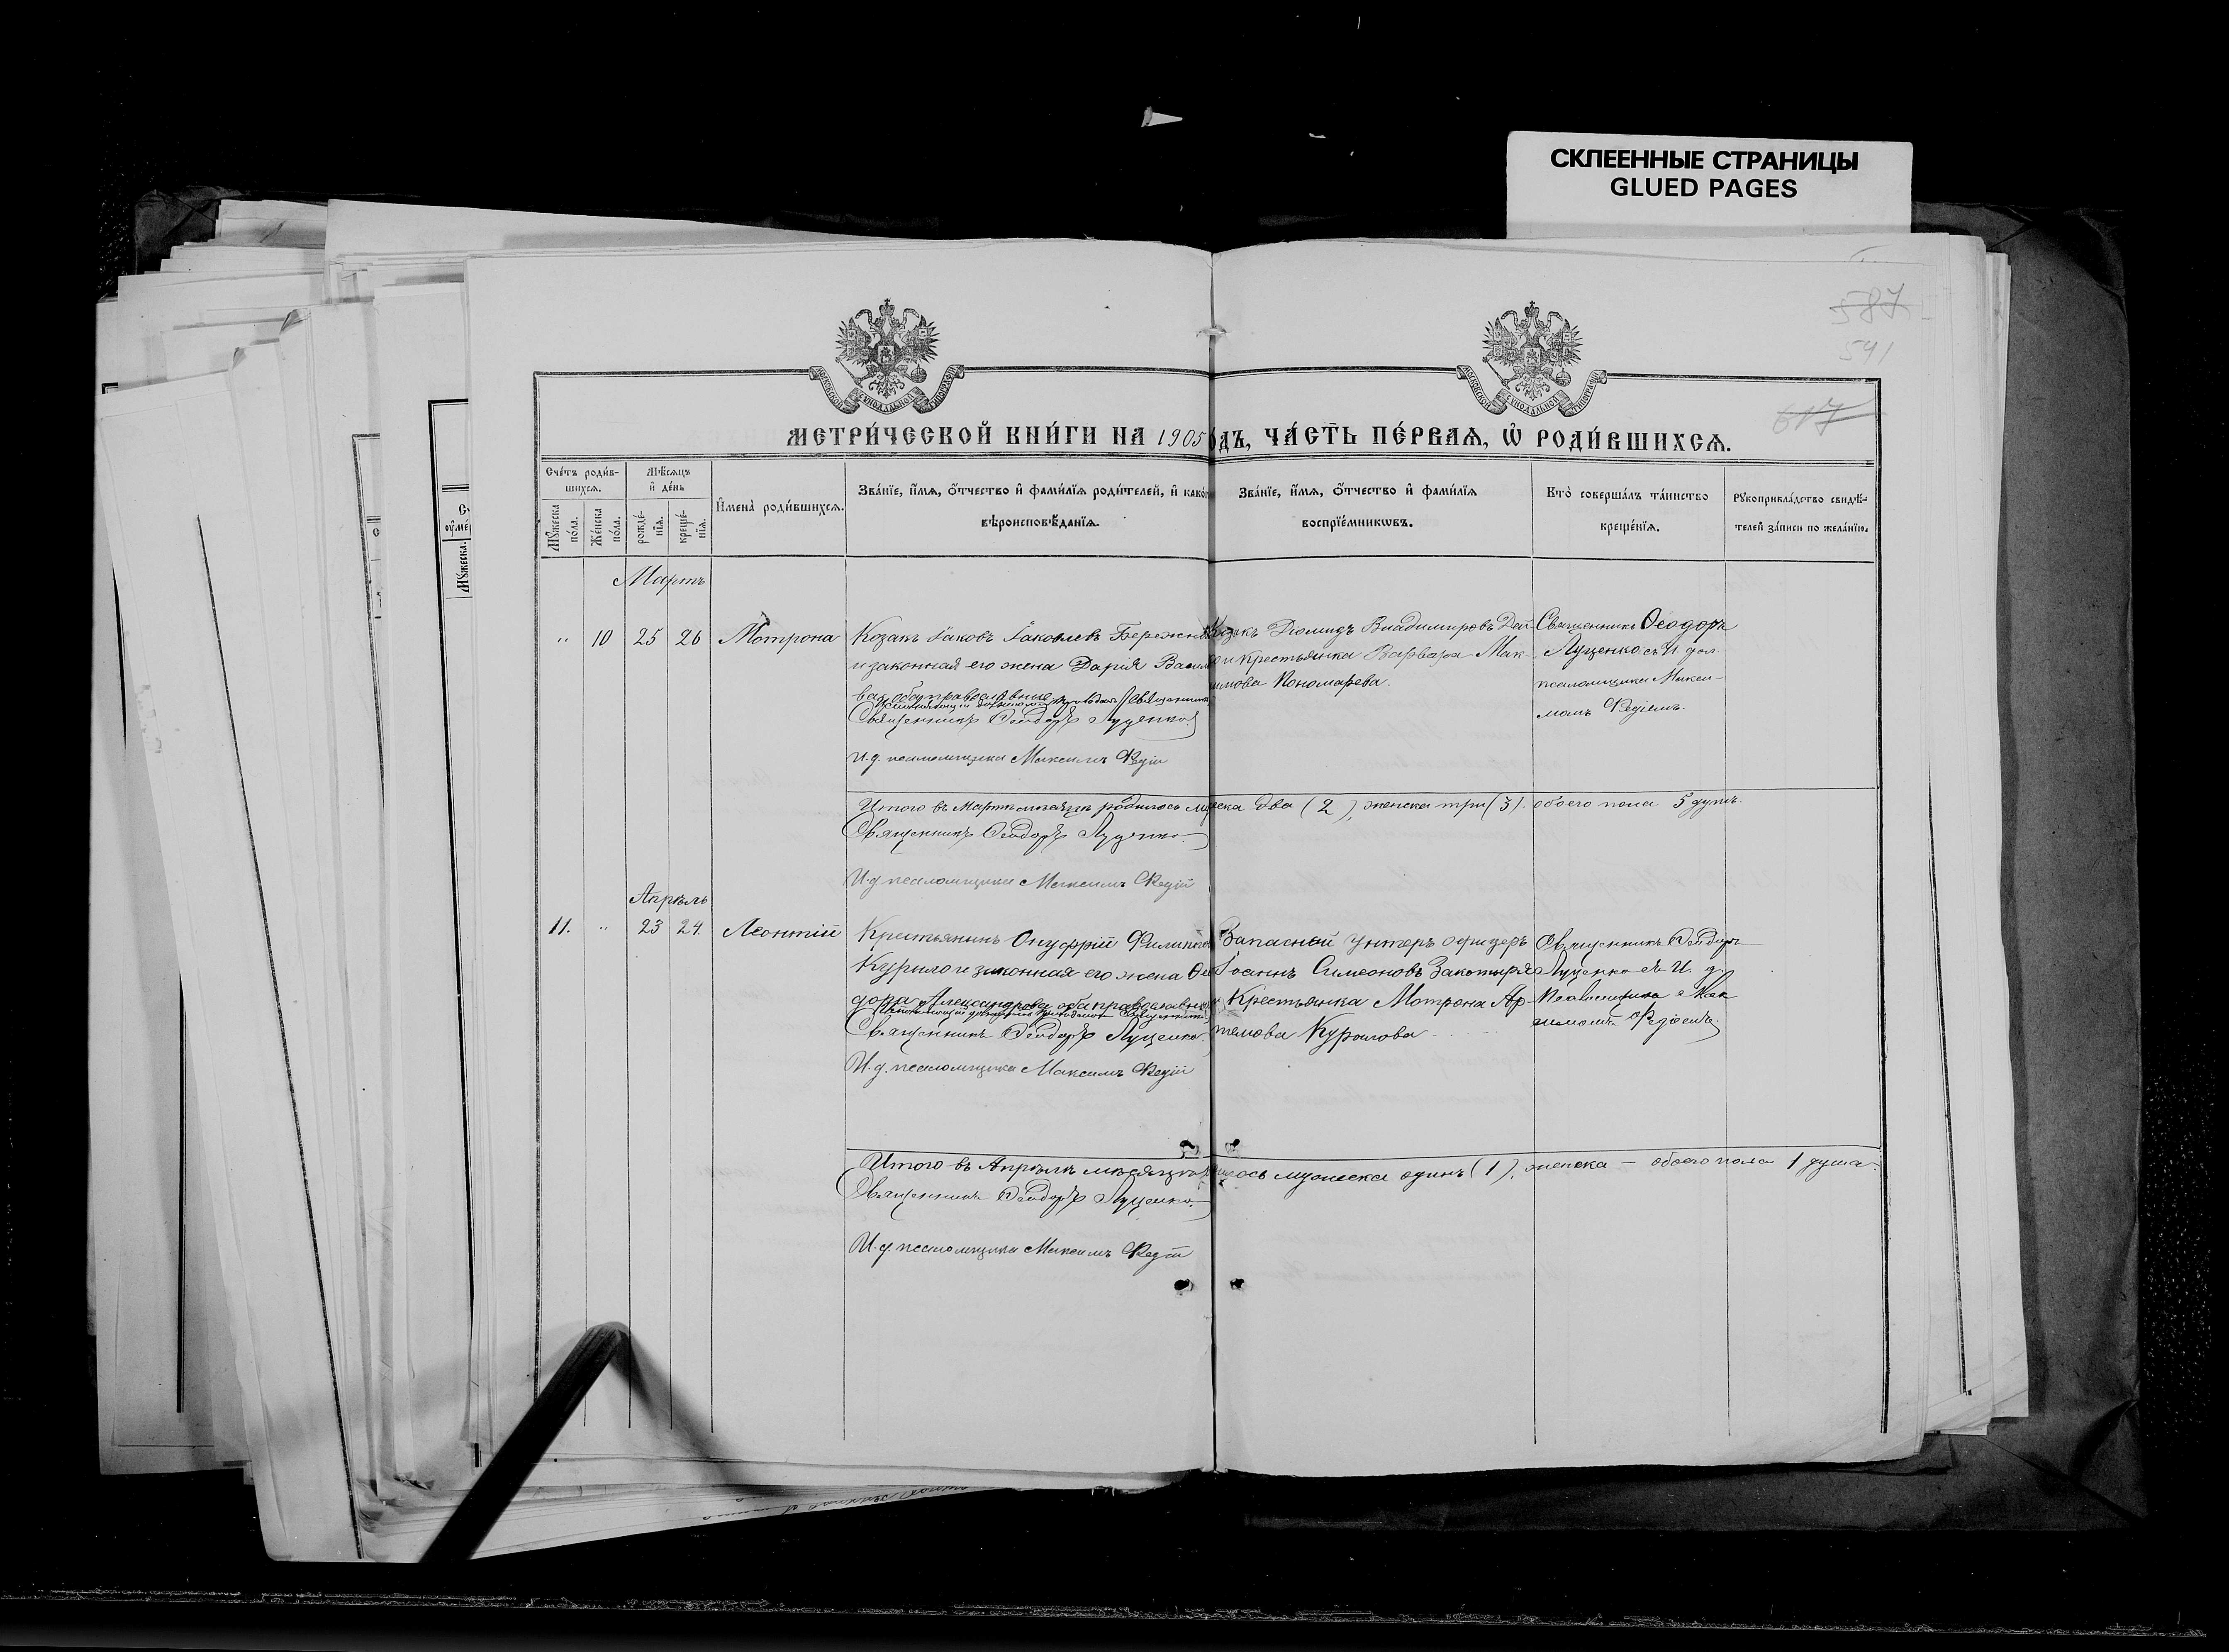 СКЛЕЕННЫЕ СТРАНИЦЫ
GLUED PAGES
587
591
617
МЕТРИ́ЧЕСКОЙ КНИ́ГИ НА 1905 ГОДЪ, ЧА́СТЬ ПЕ́РВАЯ, Ѡ҆ РОДИ́ВШИХСЯ.
Сче́тъ роди́в-
шихся.
Мѣ́сяцъ
и҆ де́нь
Мꙋ́жеска
по́ла.
Же́нска
по́ла.
рожде́-
нїѧ.
креще́-
нїѧ.
И҆мена̀ роди́вшихсѧ.
Зва́нїе, и҆́мѧ, ѻ҆́тчество и҆ фами́лїѧ роди́телей, и҆ како́гѡ
вѣроисповѣ́данїѧ.
Зва́нїе, и҆́мѧ, ѻ҆́тчество и҆ фами́лїѧ
воспрїе́мникѡвъ.
Кто̀ соверша́лъ та́инство
креще́нїѧ.
Рꙋкоприкла́дство свидѣ́-
телей за́писи по жела́нїю.
Мартъ
" 10 25 26 Мотрона
Козакъ Іаковъ Іаковлевъ Бережн
и законная его жена Дарія Васил
ва, оба православные
Священникъ Ѳеодоръ Луценко
И. д. псаломщика Максимъ Ѳедій
Козакъ Діомидъ Владиміровъ Дей-
ко и крестьянка Варвара Мак-
симова Пономарева.
Священникъ Ѳеодоръ
Луценко съ И. дол.
псаломщика Макси-
момъ Ѳедіемъ.
Итого въ Мартѣ мѣсяцѣ родилось мужеска два (2), женска три (3). обоего пола 5 душъ.
Священникъ Ѳеодоръ Луценко.
И. д. псаломщика Максимъ Ѳедій
Апрѣль
11. " 23 24. Леонтій
Крестьянинъ Онуфрій Филипов
Курыло и законная его жена Ѳео
дора Александрова, оба православные
Священникъ Ѳеодоръ Луценко.
И. д. псаломщика Максимъ Ѳедій
Запасный унтеръ офицеръ
Іоаннъ Симеоновъ
и Крестьянка Мотрона Ар-
темова Курилова
Священникъ Ѳеодоръ
Луценко съ И. д.
Псаломщика Мак
симомъ Ѳедіемъ.
Итого въ Апрѣлѣ мѣсяцѣ родилось мужеска одинъ (1), женска — обоего пола 1 душа.
Священникъ Ѳеодоръ Луценко.
И. д. псаломщика Максимъ Ѳедій